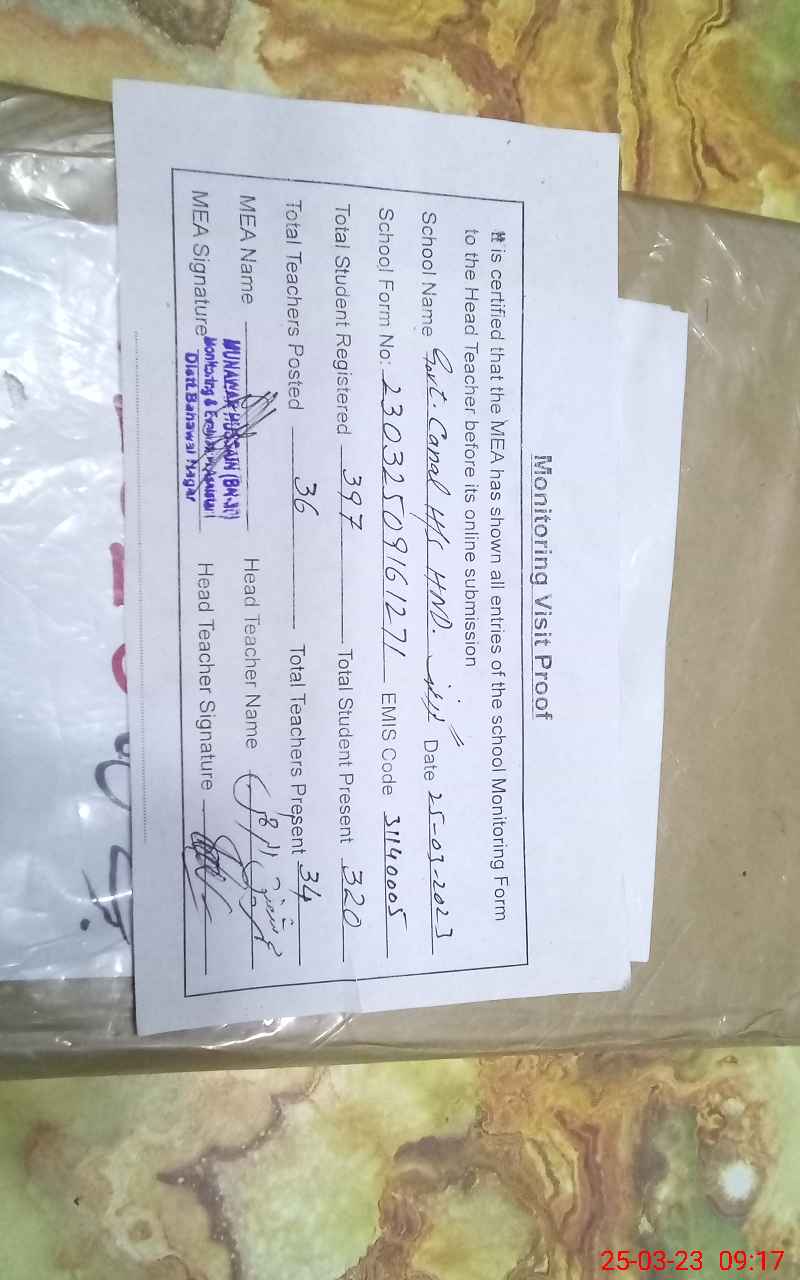 Monitoring Visit Proof
It is certified that the MEA has shown all entries of the school Monitoring Form
to the Head Teacher before its online submission
School Name Govt. Canal H/S HND. Date 25-03-2023
School Form No: 23032509161271 EMIS Code 31140005
Total Student Registered 397 Total Student Present 320
Total Teachers Posted 36 Total Teachers Present 34
MEA Name MUNAWAR HUSSAIN Head Teacher Name
MEA Signature Monitoring & Head Teacher Signature
Distt. Bahawal Nagar
25-03-23 09:17